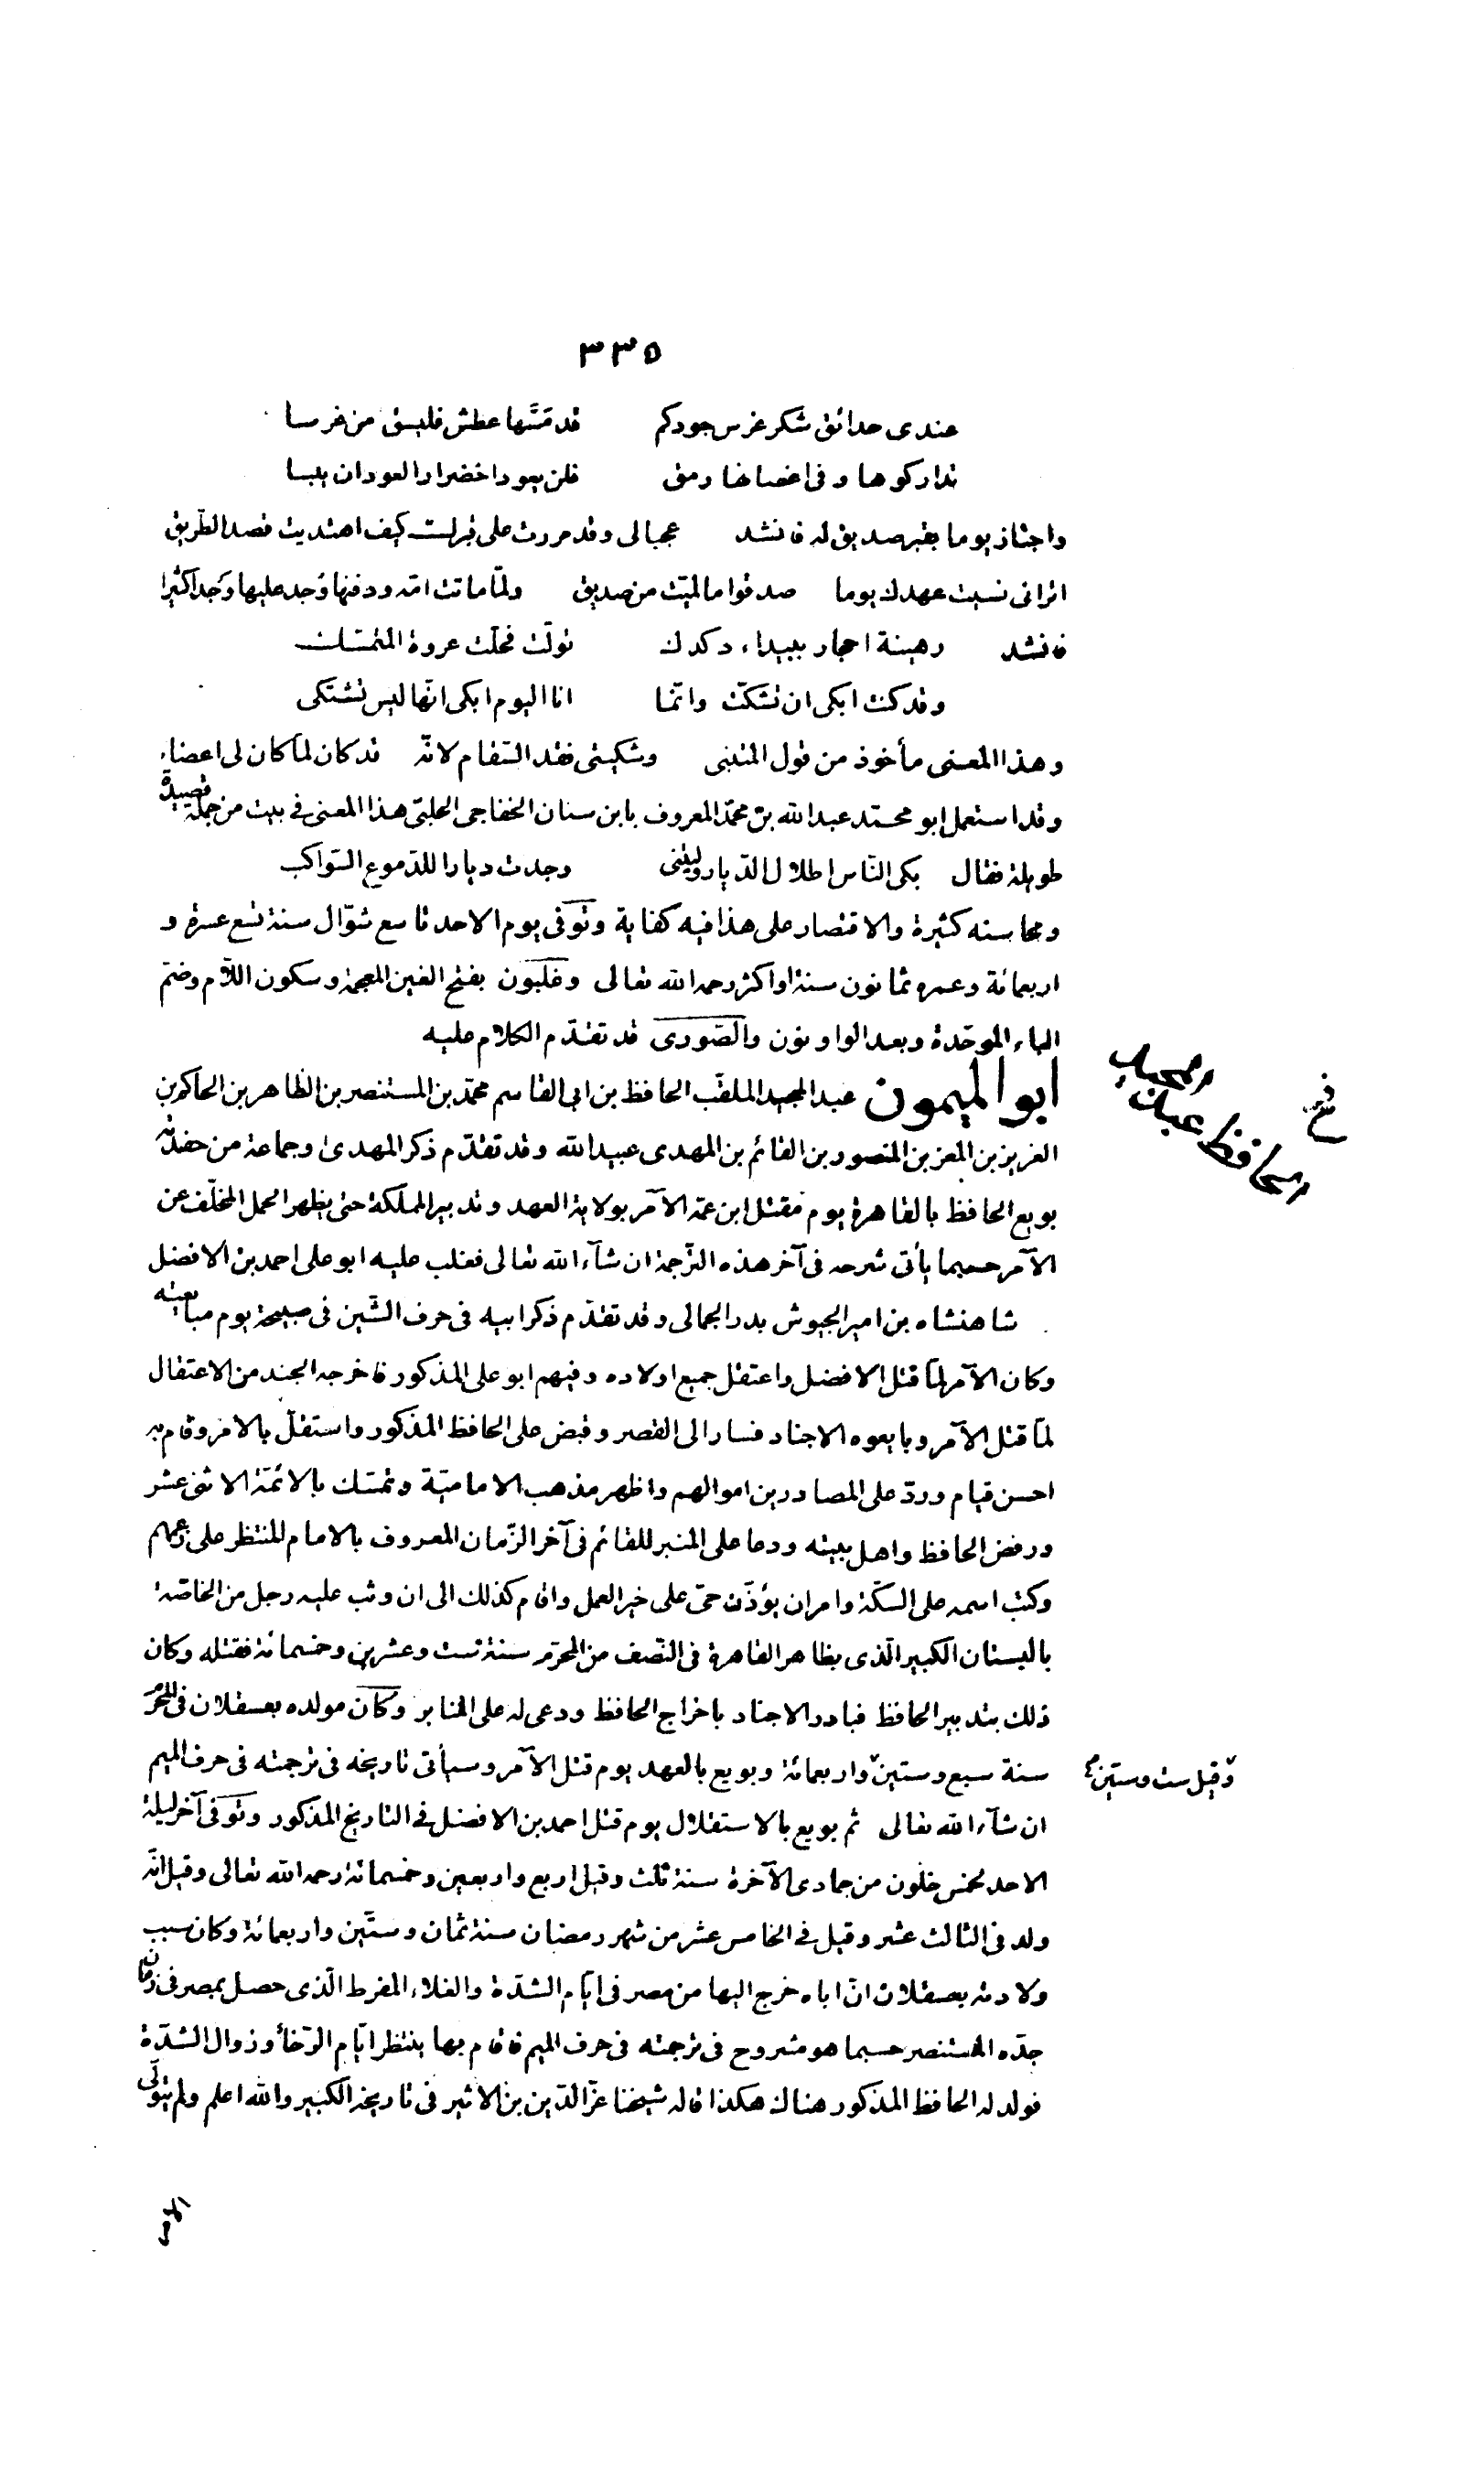 ٣٣٥
عندى حدائق شكر غرس جودكم قد مسّها عطش فليسق من غرسا
تداركوها وفى اغصانها رمق فلن يعود اخضرار العود ان يبسا
واجتاز يوما بقبر صديق له فانشد عجبا لى وقد مررت على قبرك كيف اهتديت قصد الطّريق
اترانى نسيت عهدك يوما صدقوا ما لميّت من صديق ولمّا ماتت امّه ودفنها وَجد عليها وَجدا كثيرا
فانشد رهينة احجار ببيداء دكدك تولّت فحلّت عروة المتمسّك
وقد كنت ابكى ان تشكّت وانّما انا اليوم ابكى انّها ليس تشتكى
وهذا المعنى مأخوذ من قول المتنبى وشكيتى فقد السّقام لانّه قد كان لمّا كان لى اعضاء
وقد استعمل ابو محمّد عبد الله بن محمّد المعروف بابن سنان الخفاجى الحلبىّ هذا المعنى فى بيت من جملة قصيدة
طويلة فقال بكى النّاس اطلال الدّيار وليتنى وجدت ديارا للدّموع السّواكب
ومحاسنه كثيرة والاقتصار على هذا فيه كفاية وتوفى يوم الاحد تاسع شوّال سنة تسع عشرة و
اربعمائة وعمره ثمانون سنة او اكثر رحمه الله تعالى وغلبون بفتح الغين المعجمة وسكون اللّام وضمّ
الباء الموحّدة وبعد الواو نون والصّورى قد تقدّم الكلام عليه
ابو الميمون عبد المجيد الملقّب الحافظ بن ابى القاسم محمّد بن المستنصر بن الظاهر بن الحاكم بن
الحافظ عبد المجيد
العزيز بن المعز بن المنصور بن القائم بن المهدى عبيد الله وقد تقدّم ذكر المهدى وجماعة من حفدته
بويع الحافظ بالقاهرة يوم مقتل ابن عمّه الآمر بولاية العهد وتدبير المملكة حتى يظهر الحمل المخلّف عن
الآمر حسبما يأتى شرحه فى آخر هذه التّرجمة ان شآء الله تعالى فغلب عليه ابو على احمد بن الافضل
شاهنشاه بن امير الجيوش بدر الجمالى وقد تقدّم ذكر ابيه فى حرف الشّين فى صبيحة يوم مبايعته
وكان الآمر لمّا قتل الافضل واعتقل جميع اولاده وفيهم ابو على المذكور فاخرجه الجند من الاعتقال
لمّا قتل الآمر وبايعوه الاجناد فسار الى القصر وقبض على الحافظ المذكور واستقلّ بالامر وقام به
احسن قيام وردّ على المصادرين اموالهم واظهر مذهب الاماميّة وتمسّك بالائمّة الاثنى عشر
ورفض الحافظ واهل بيته ودعا على المنبر للقائم فى آخر الزّمان المعروف بالامام المنتظر على زعمهم
وكتب اسمه على السكّة وامر ان يؤذّن حىّ على خير العمل واقام كذلك الى ان وثب عليه رجل من الخاصّة
بالبستان الكبير الّذى بظاهر القاهرة فى النّصف من المحرّم سنة ست وعشرين وخمسمائة فقتله وكان
ذلك بتدبير الحافظ فبادر الاجناد باخراج الحافظ ودعى له على المنابر وكان مولده بعسقلان فى المحرّم
سنة سبع وستين واربعمائة وبويع بالعهد يوم قتل الآمر وسيأتى تاريخه فى ترجمته فى حرف الميم
وقيل ست وستين
ان شآء الله تعالى ثم بويع بالاستقلال يوم قتل احمد بن الافضل فى التاريخ المذكور وتوفى آخر ليلة
الاحد لخمس خلون من جمادى الآخرة سنة ثلث وقيل اربع واربعين وخمسمائة رحمه الله تعالى وقيل انّه
ولد فى الثالث عشر وقيل فى الخامس عشر من شهر رمضان سنة ثمان وستّين واربعمائة وكان سبب
ولادته بعسقلان انّ اباه خرج اليها من مصر فى ايّام الشدّة والغلاء المفرط الّذى حصل بمصر فى زمان
جدّه المستنصر حسبما هو مشروح فى ترجمته فى حرف الميم فاقام بها ينتظر ايّام الرّخاء وزوال الشدّة
فولد له الحافظ المذكور هناك هكذا قاله شيخنا عزّ الدّين بن الاثير فى تاريخه الكبير والله اعلم ولم يتولّ
الامر